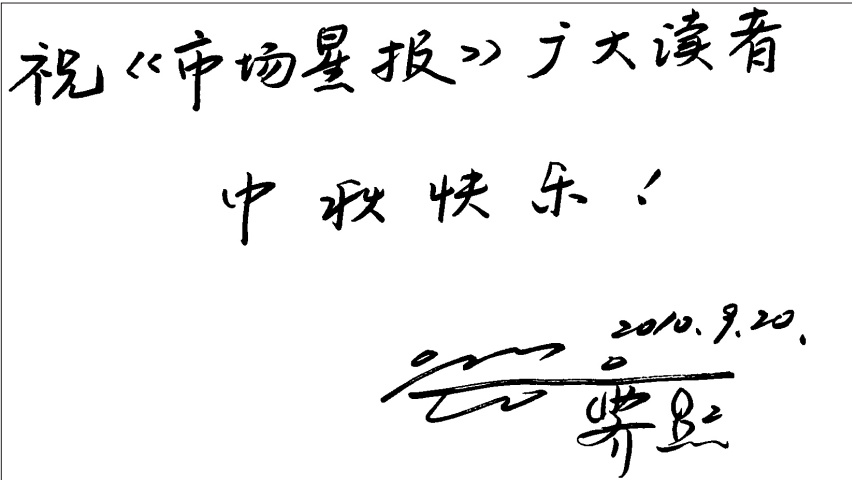 祝《市场星报》广大读者
中秋快乐！
2010.9.20.